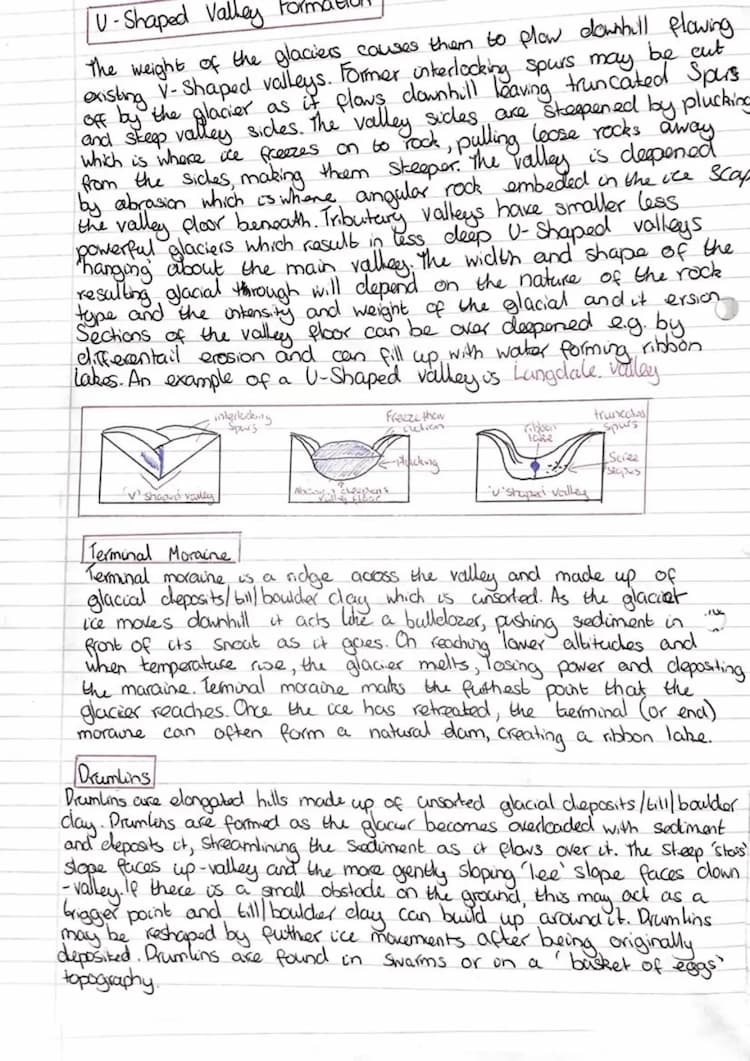 U-Shaped Valley Formation
The weight of the glaciers causes them to flow downhill flowing
existing V-Shaped valleys. Former interlocking spurs may be cut
off by the glacier as it flows downhill leaving truncated Spurs
and steep valley sides. The valley sides are steepened by plucking
which is where ice freezes on to rock, pulling loose rocks away
from the sides, making them steeper. The valley is deepened
by abrasion which is where angular rock embeded in the ice scap
the valley floor beneath. Tributary valleys have smaller less
powerful glaciers which result in less deep U-Shaped valleys
'hanging' about the main valley. The width and shape of the
resulting glacial through will depend on the nature of the rock
type and the intensity and weight of the glacial and it ersion
Sections of the valley floor can be over deepened e.g. by
differentail erosion and can fill up with water forming ribbon
lakes. An example of a U-Shaped valley is Langdale valley
interlocking
spurs
'V' shaped valley
Freeze thaw
action
plucking
valley floor
ribbon
lake
truncated
spurs
Scree
slopes
'U' shaped valley
Terminal Moraine
Terminal moraine is a ridge across the valley and made up of
glacial deposits/till/boulder clay which is unsorted. As the glacier
ice moves downhill it acts like a bulldozer, pushing sediment in
front of its snout as it goes. On reaching lower altitudes and
when temperature rise, the glacier melts, losing power and depositing
the maraine. Terminal moraine maks the futhest point that the
glacier reaches. Once the ice has retreated, the terminal (or end)
moraine can often form a natural dam, creating a ribbon lake.
Drumlins
Drumlins are elongated hills made up of unsorted glacial deposits/till/boulder
clay. Drumlins are formed as the glacier becomes overloaded with sediment
and deposits it, streamlining the sediment as it flows over it. The steep 'stoss'
slope faces up-valley and the more gently sloping 'lee' slope faces down
-valley. If there is a small obstacle on the ground, this may act as a
trigger point and till/boulder clay can build up around it. Drumlins
may be reshaped by futher ice movements after being originally
deposited. Drumlins are found in swarms or on a 'basket of eggs'
topography.